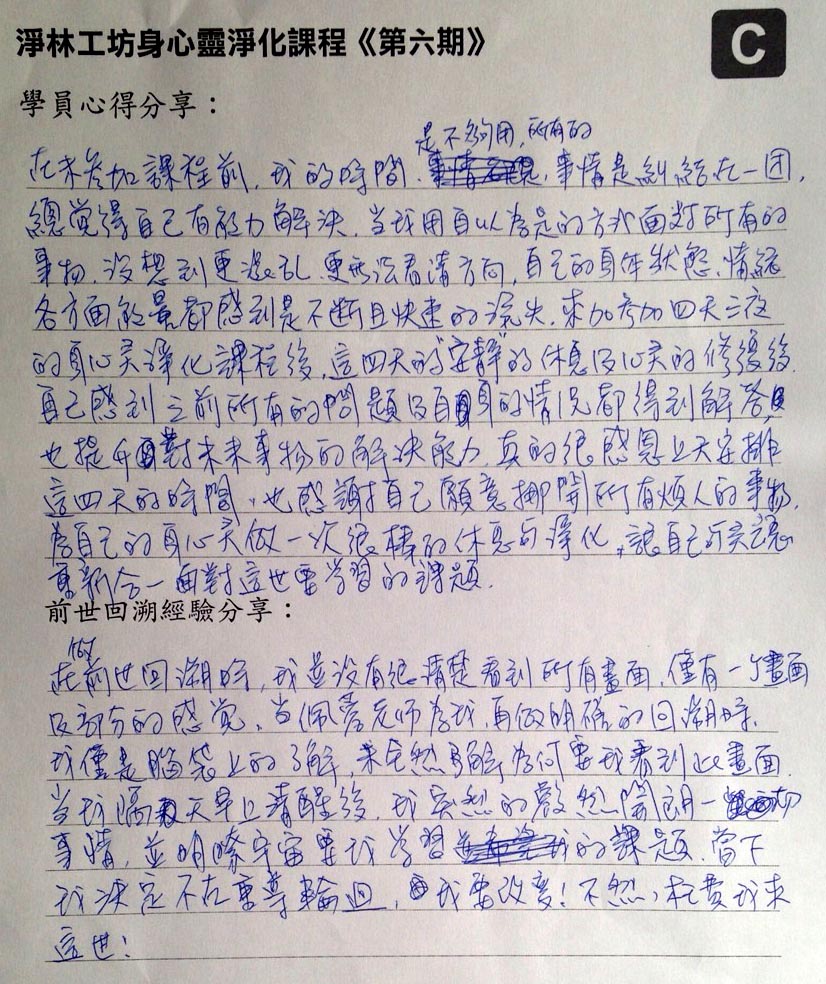 淨林工坊身心靈淨化課程《第六期》
C
學員心得分享：
是不夠用，所有的
在未參加課程前，我的時間，事情是糾結在一团，
總覺得自己有能力解決，当我用自以為是的方式面對所有的
事物，沒想到更混乱，更無法看清方向，自己的身体狀態、情緒
各方面能量都感到是不断且快速的流失，來加参加四天三夜
的身心灵淨化課程後，這四天的"安静"的休息及心灵的修復後，
自己感到之前所有的問題及自身的情况都得到解答，
也提升對未來事物的解決能力，真的很感恩上天安排
這四天的時間，也感謝自己願意挪開所有煩人的事物，
為自己的身心灵做一次很棒的休息与淨化，讓自己
重新合一面對這世要学習的課題。
前世回溯經驗分享：
在前世回溯時，我並沒有很清楚看到所有畫面，僅有一个畫面
及部份的感觉，当佩蓉老师為我再做明確的回溯時，
我僅是腦袋上的了解，未全然了解為何要我看到此畫面，
当我隔天早上清醒後，我突然的豁然開朗一切
事情，並明瞭宇宙要我学習的課題，當下
我決定不在重導輪迴，我要改变！不然，枉費我來
這世！